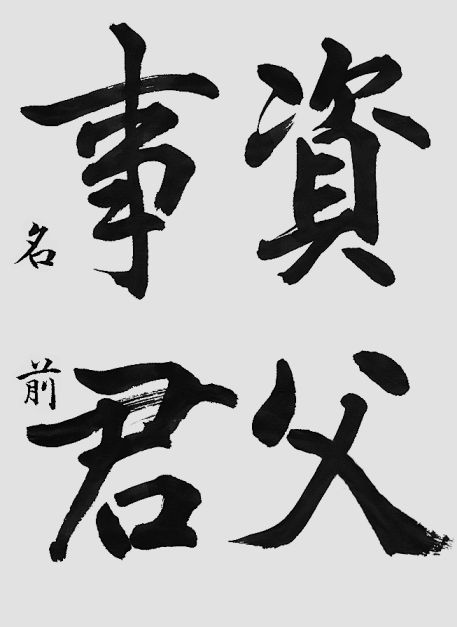 資父
事君
名前